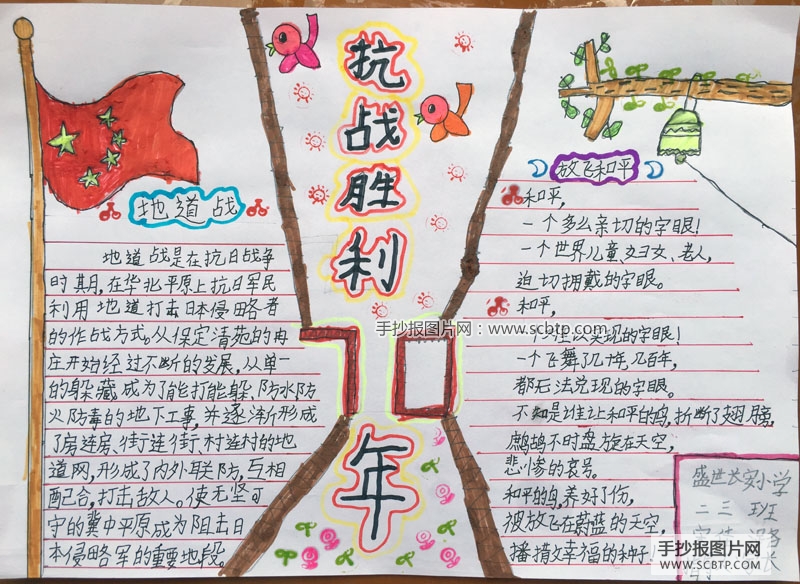 抗
战
胜
利
70
年
地道战
地道战是在抗日战争
时期,在华北平原上抗日军民
利用地道打击日本侵略者
的作战方式。从保定清苑的冉
庄开始经过不断的发展,从单一
的躲藏成为了能打能躲、防水防
火防毒的地下工事,并逐渐形成
了房连房、街连街、村连村的地
道网,形成了内外联防,互相
配合,打击敌人。使无坚可
守的冀中平原成为阻击日
本侵略军的重要地段。
放飞和平
和平,
一个多么亲切的字眼!
一个世界儿童、妇女、老人,
迫切拥戴的字眼。
和平,
一个
以实现的字眼!
一个飞舞了几十年,几百年,
都无法兑现的字眼。
不知是谁让和平的鸽,折断了翅膀,
鹧鸪不时盘旋在天空,
悲惨的哀号。
和平的鸽,养好了伤,
被放飞在蔚蓝的天空,
播撒幸福的种子!
盛世长安小学
二三班
手抄报图片网:www.scbtp.com
手抄报图片网
WWW.SCBTP.COM